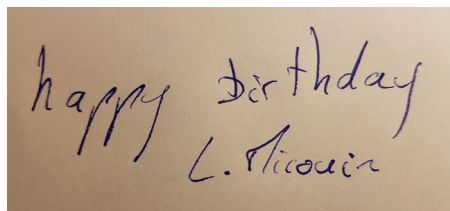 happy Birthday
L. Micouin